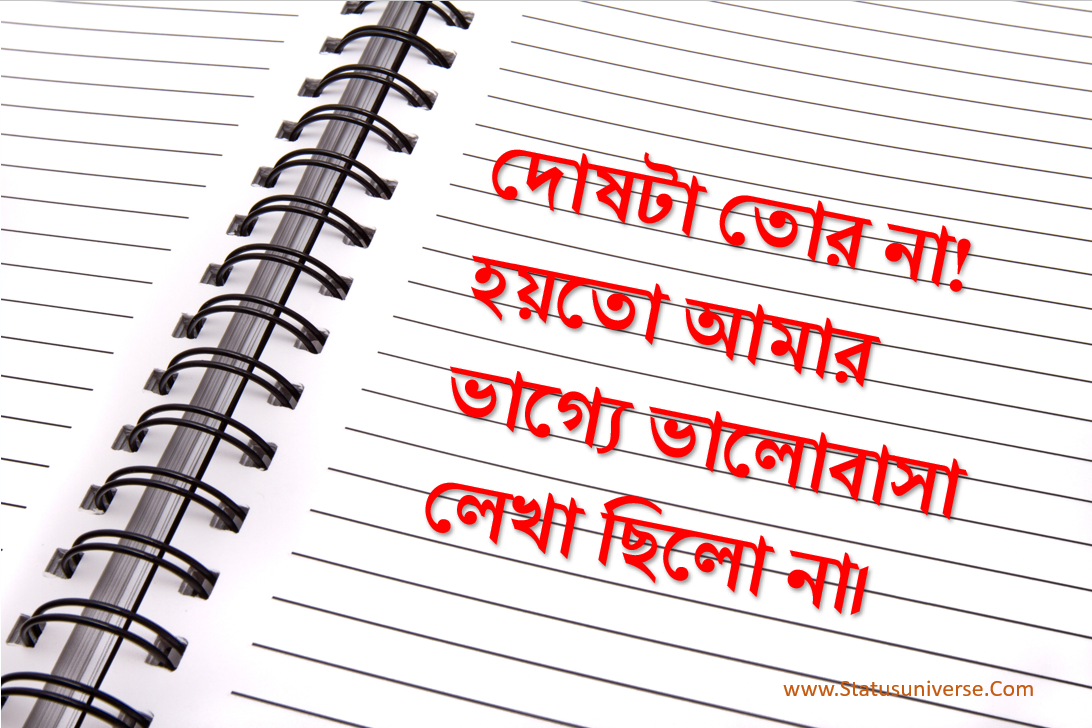 দোষটা তোর না!
হয়তো আমার
ভাগ্যে ভালোবাসা
লেখা ছিলো না।
www.Statusuniverse.Com